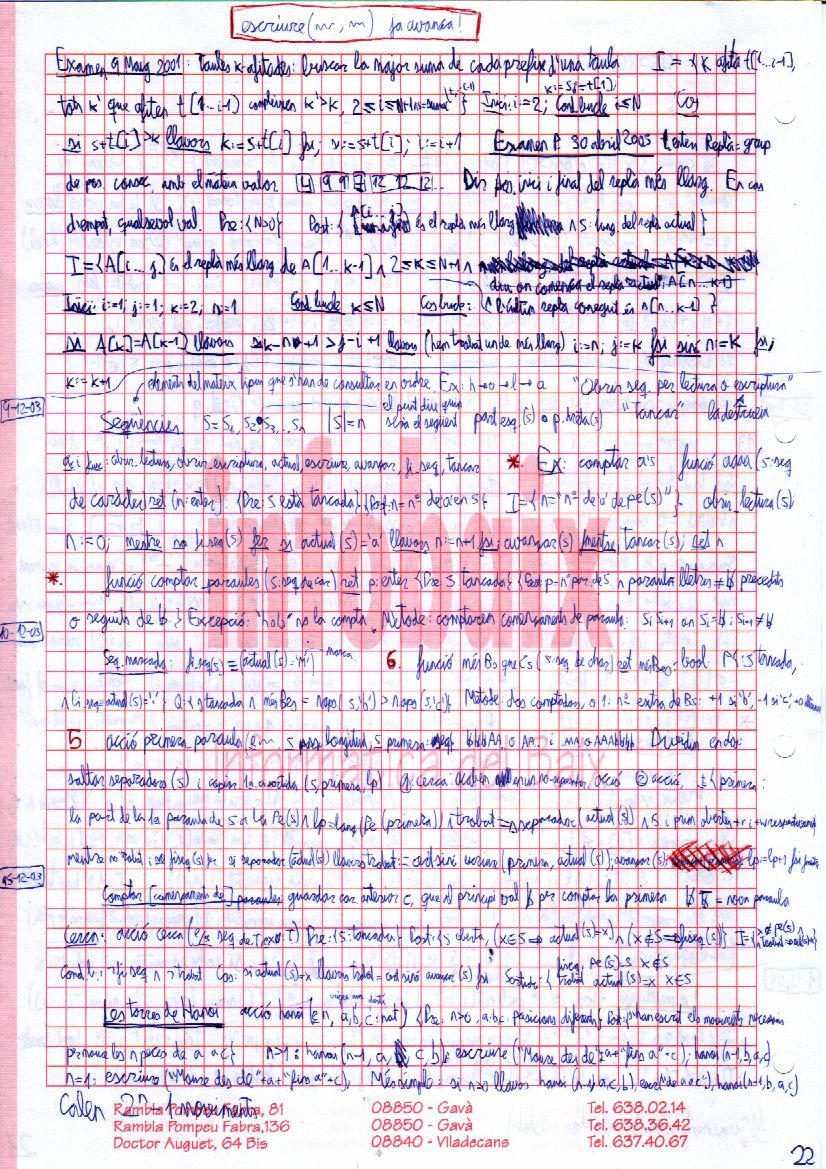 escriure(m, n) ja avança!
Examen 9 Maig 2001: Taules k-afitades: buscar la major suma de cada prefix d'una taula I = {K afita t[1...i-1],
tots k' que afiten t[1..i-1] compleixen k'>k, 2≤i≤N+1 Inici: i:=2; Cond bucle i≤N Cos
si s+t[i]>k llavors k:=s+t[i] fsi; s:=s+t[i]; i:=i+1 Examen P. 30 abril 2003 t enten Replà = grup
de pos. consec. amb el mateix valor 9 9 7 12 12 12 Dir pos. inici i final del replà més llarg. En cas
d'empat, qualsevol val. Pre: {N>0} Post: { A[i..j] és el replà més llarg ∧ s: long. del replà actual}
I={A[i...j] és el replà més llarg de A[1..k-1] ∧ 2≤k≤N+1 ∧
diu on comença el replà actual: A[n...k-1]
Inici: i:=1; j:=1; k:=2; n:=1 Cond bucle k≤N Cos bucle: {L'últim replà conegut és A[n..k-1]}
si A[k]=A[k-1] llavors si k-n+1 > j-i+1 llavors (hem trobat un de més llarg) i:=n; j:=k fsi sinó n:=k fsi;
k:=k+1 elements del mateix tipus que s'han de consultar en ordre Ex: h→o→l→a "Obrir seq. per lectura o escriptura"
9-12-03
Seqüències S=S1, S2, S3... Sn |S|=n el punt diu quin seria el següent part esq.(s) • p. dreta(s) "Tancar" la destrueix
acc i func: obrir_lectura, obrir_escriptura, actual, escriure, avançar, fi_seq, tancar * Ex: comptar a's funció aaaa (s: seq
de caràcter) ret (n: enter): {Pre: s està tancada} {Post: n = nº de 'a' en s} I={n="nº de 'a' de pe(s)"} obrir_lectura(s)
n:=0; mentre no fi_seq(s) fer si actual(s)='a' llavors n:=n+1 fsi; avançar(s) fmentre; tancar(s); ret n
* funció comptar_paraules (s: seq de car) ret p: enter {Pre s tancada} {Post p=nº par de s ∧ paraula: lletres ≠ ƀ precedits
o seguits de ƀ.} Excepció: "hola" no la compta. Mètode: comptarem començaments de paraula: Si Si+1 on Si=ƀ i Si+1≠ƀ
10-12-03
Seq. marcada: fi_seq(s) ≡ (actual(s)='m') marca 6. funció mésBs que Cs (s: seq. de char) ret mésBes: bool. P{s tancada,
∧ fi_seq=actual(s)='.'} Q: {s tancada ∧ mésBes = naps(s,'b') > naps(s,'c')} Mètode: dos comptadors, o 1: nº extra de Bs: +1 si 'b', -1 si 'c', +0 altrament
5 acció primera_paraula (e/s s, longitud, s primera: seq) ƀƀƀAA o AA. i .AA o AAAƀƀƀƀ Dividim en dos:
saltar_separadors(s) i copiar_la_a_sortida (s, primera, lp) ① cerca: acaben en un no-separador, acció ② acció. I={primera:
la part de la 1a paraula de s a la Pe(s) ∧ lp=long(Pe(primera)) ∧ trobat ⇒ separador(actual(s)) ∧ s i prim obertes r i w respectivament}
mentre no trobat i no fiseq(s) fer si separador(actual(s)) llavors trobat:=cert sinó escriure(primera, actual(s)); avançar(s); lp:=lp+1 fsi fmentre
15-12-03
Comptar [començaments de] paraules: guardar car anterior c, que al principi val ƀ per comptar la primera ƀ = nova paraula
Cerca: acció cerca (e/s seq de T, x: T) Pre: {s: tancada} Post: {s oberta, (x∈S ⇒ actual(s)=x) ∧ (x∉S ⇒ fiseq(s))} I={x∉pe(s) ∧ trobat ⇒ actual(s)=x}
Cond b.: ¬fiseq ∧ ¬trobat Cos: si actual(s)=x llavors trobat:=cert sinó avançar(s) fsi Sortida: { fiseq Pe(s)=S x∉S
trobat actual(s)=x x∈S
Les torres de Hanoi acció hanoi (e n, a, b, c: nat) {Pre: n>0, a,b,c: posicions diferents} Post: {S'han escrit els moviments necessaris
origen aux destí
per moure les n peces de a a c} n>1: hanoi(n-1, a, c, b); escriure("Moure des de"+a+"fins a"+c); hanoi(n-1, b, a, c)
n=1: escriure("Moure des de"+a+"fins a"+c); Més simple: si n>0 llavors hanoi(n-1, a, c, b), escr("de a a c"), hanoi(n-1, b, a, c)
Calen 2ⁿ-1 moviments
infobaix
informàtica del Baix
Rambla Pompeu Fabra, 81 08850 - Gavà Tel. 638.02.14
Rambla Pompeu Fabra,136 08850 - Gavà Tel. 638.36.42
Doctor Auguet, 64 Bis 08840 - Viladecans Tel. 637.40.67
22